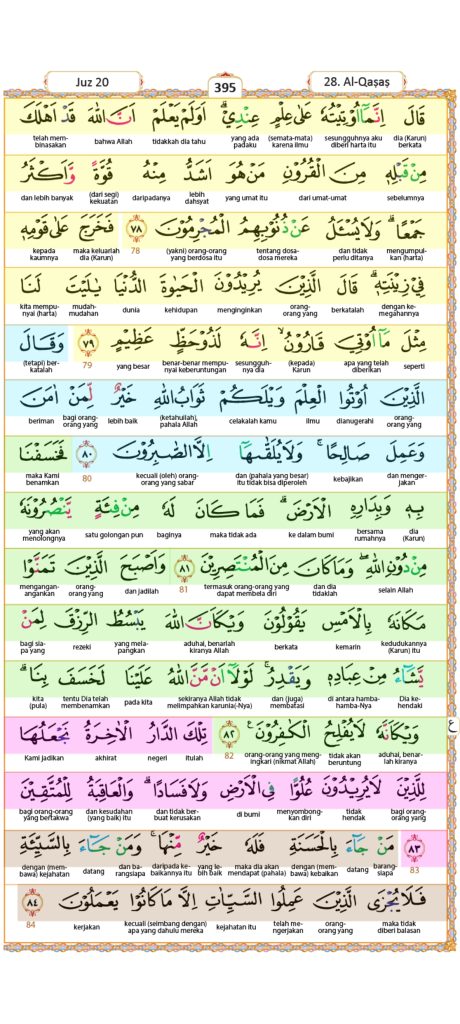 Juz 20
395
28. Al-Qaṣaṣ
قَالَ اِنَّمَآ اُوْتِيْتُهٗ عَلٰى عِلْمٍ عِنْدِيْۗ اَوَلَمْ يَعْلَمْ اَنَّ اللّٰهَ قَدْ اَهْلَكَ
dia (Karun) berkata sesungguhnya aku diberi harta itu (semata-mata) karena ilmu yang ada padaku tidakkah dia tahu bahwa Allah telah membinasakan
مِنْ قَبْلِهٖ مِنَ الْقُرُوْنِ مَنْ هُوَ اَشَدُّ مِنْهُ قُوَّةً وَّاَكْثَرُ
sebelumnya dari umat-umat yang umat itu lebih dahsyat daripadanya (dari segi) kekuatan dan lebih banyak
جَمْعًاۗ وَلَا يُسْـَٔلُ عَنْ ذُنُوْبِهِمُ الْمُجْرِمُوْنَ ٧٨ فَخَرَجَ عَلٰى قَوْمِهٖ
mengumpulkan (harta) dan tidak perlu ditanya tentang dosa-dosa mereka (yakni) orang-orang yang berdosa itu 78 maka keluarlah dia (Karun) kepada kaumnya
فِيْ زِيْنَتِهٖۗ قَالَ الَّذِيْنَ يُرِيْدُوْنَ الْحَيٰوةَ الدُّنْيَا يٰلَيْتَ لَنَا
dengan kemegahannya berkatalah orang-orang yang menginginkan kehidupan dunia mudah-mudahan kita mempunyai (harta)
مِثْلَ مَآ اُوْتِيَ قَارُوْنُۙ اِنَّهٗ لَذُوْ حَظٍّ عَظِيْمٍ ٧٩ وَقَالَ
seperti apa yang telah diberikan (kepada) Karun sesungguhnya dia benar-benar mempunyai keberuntungan yang besar 79 (tetapi) berkatalah
الَّذِيْنَ اُوْتُوا الْعِلْمَ وَيْلَكُمْ ثَوَابُ اللّٰهِ خَيْرٌ لِّمَنْ اٰمَنَ
orang-orang yang dianugerahi ilmu celakalah kamu (ketahuilah), pahala Allah lebih baik bagi orang-orang yang beriman
وَعَمِلَ صَالِحًاۚ وَلَا يُلَقّٰىهَآ اِلَّا الصّٰبِرُوْنَ ٨٠ فَخَسَفْنَا
dan mengerjakan kebajikan dan (pahala yang besar) itu tidak bisa diperoleh kecuali (oleh) orang-orang yang sabar 80 maka Kami benamkan
بِهٖ وَبِدَارِهِ الْاَرْضَۗ فَمَا كَانَ لَهٗ مِنْ فِئَةٍ يَّنْصُرُوْنَهٗ
dia (Karun) bersama rumahnya ke dalam bumi maka tidak ada baginya satu golongan pun yang akan menolongnya
مِنْ دُوْنِ اللّٰهِۖ وَمَا كَانَ مِنَ الْمُنْتَصِرِيْنَ ٨١ وَاَصْبَحَ الَّذِيْنَ تَمَنَّوْا
selain Allah dan dia tidaklah termasuk orang-orang yang dapat membela diri 81 dan jadilah orang-orang yang mengangan-angankan
مَكَانَهٗ بِالْاَمْسِ يَقُوْلُوْنَ وَيْكَاَنَّ اللّٰهَ يَبْسُطُ الرِّزْقَ لِمَنْ
kedudukannya (Karun) itu kemarin berkata aduhai, benarlah kiranya Allah yang melapangkan rezeki bagi siapa yang
يَّشَاۤءُ مِنْ عِبَادِهٖ وَيَقْدِرُۚ لَوْلَآ اَنْ مَّنَّ اللّٰهُ عَلَيْنَا لَخَسَفَ بِنَاۗ
Dia kehendaki di antara hamba-hamba-Nya dan (juga) membatasi sekiranya Allah tidak melimpahkan karunia(-Nya) pada kita tentu Dia telah membenamkan kita (pula)
وَيْكَاَنَّهٗ لَا يُفْلِحُ الْكٰفِرُوْنَ ٨٢ تِلْكَ الدَّارُ الْاٰخِرَةُ نَجْعَلُهَا
ع
aduhai, benarlah kiranya tidak akan beruntung orang-orang yang mengingkari (nikmat Allah) 82 itulah negeri akhirat Kami jadikan
لِلَّذِيْنَ لَا يُرِيْدُوْنَ عُلُوًّا فِى الْاَرْضِ وَلَا فَسَادًاۗ وَالْعَاقِبَةُ لِلْمُتَّقِيْنَ
bagi orang-orang yang tidak hendak menyombongkan diri di bumi dan tidak berbuat kerusakan dan kesudahan (yang baik) itu bagi orang-orang yang bertakwa
٨٣ مَنْ جَاۤءَ بِالْحَسَنَةِ فَلَهٗ خَيْرٌ مِّنْهَاۚ وَمَنْ جَاۤءَ بِالسَّيِّئَةِ
83 barangsiapa datang dengan (membawa) kebaikan maka dia akan mendapat (pahala) yang lebih baik daripada kebaikannya itu dan barangsiapa datang dengan (membawa) kejahatan
فَلَا يُجْزَى الَّذِيْنَ عَمِلُوا السَّيِّاٰتِ اِلَّا مَا كَانُوْا يَعْمَلُوْنَ ٨٤
maka tidak diberi balasan orang-orang yang telah mengerjakan kejahatan itu kecuali (seimbang dengan) apa yang dahulu mereka kerjakan 84